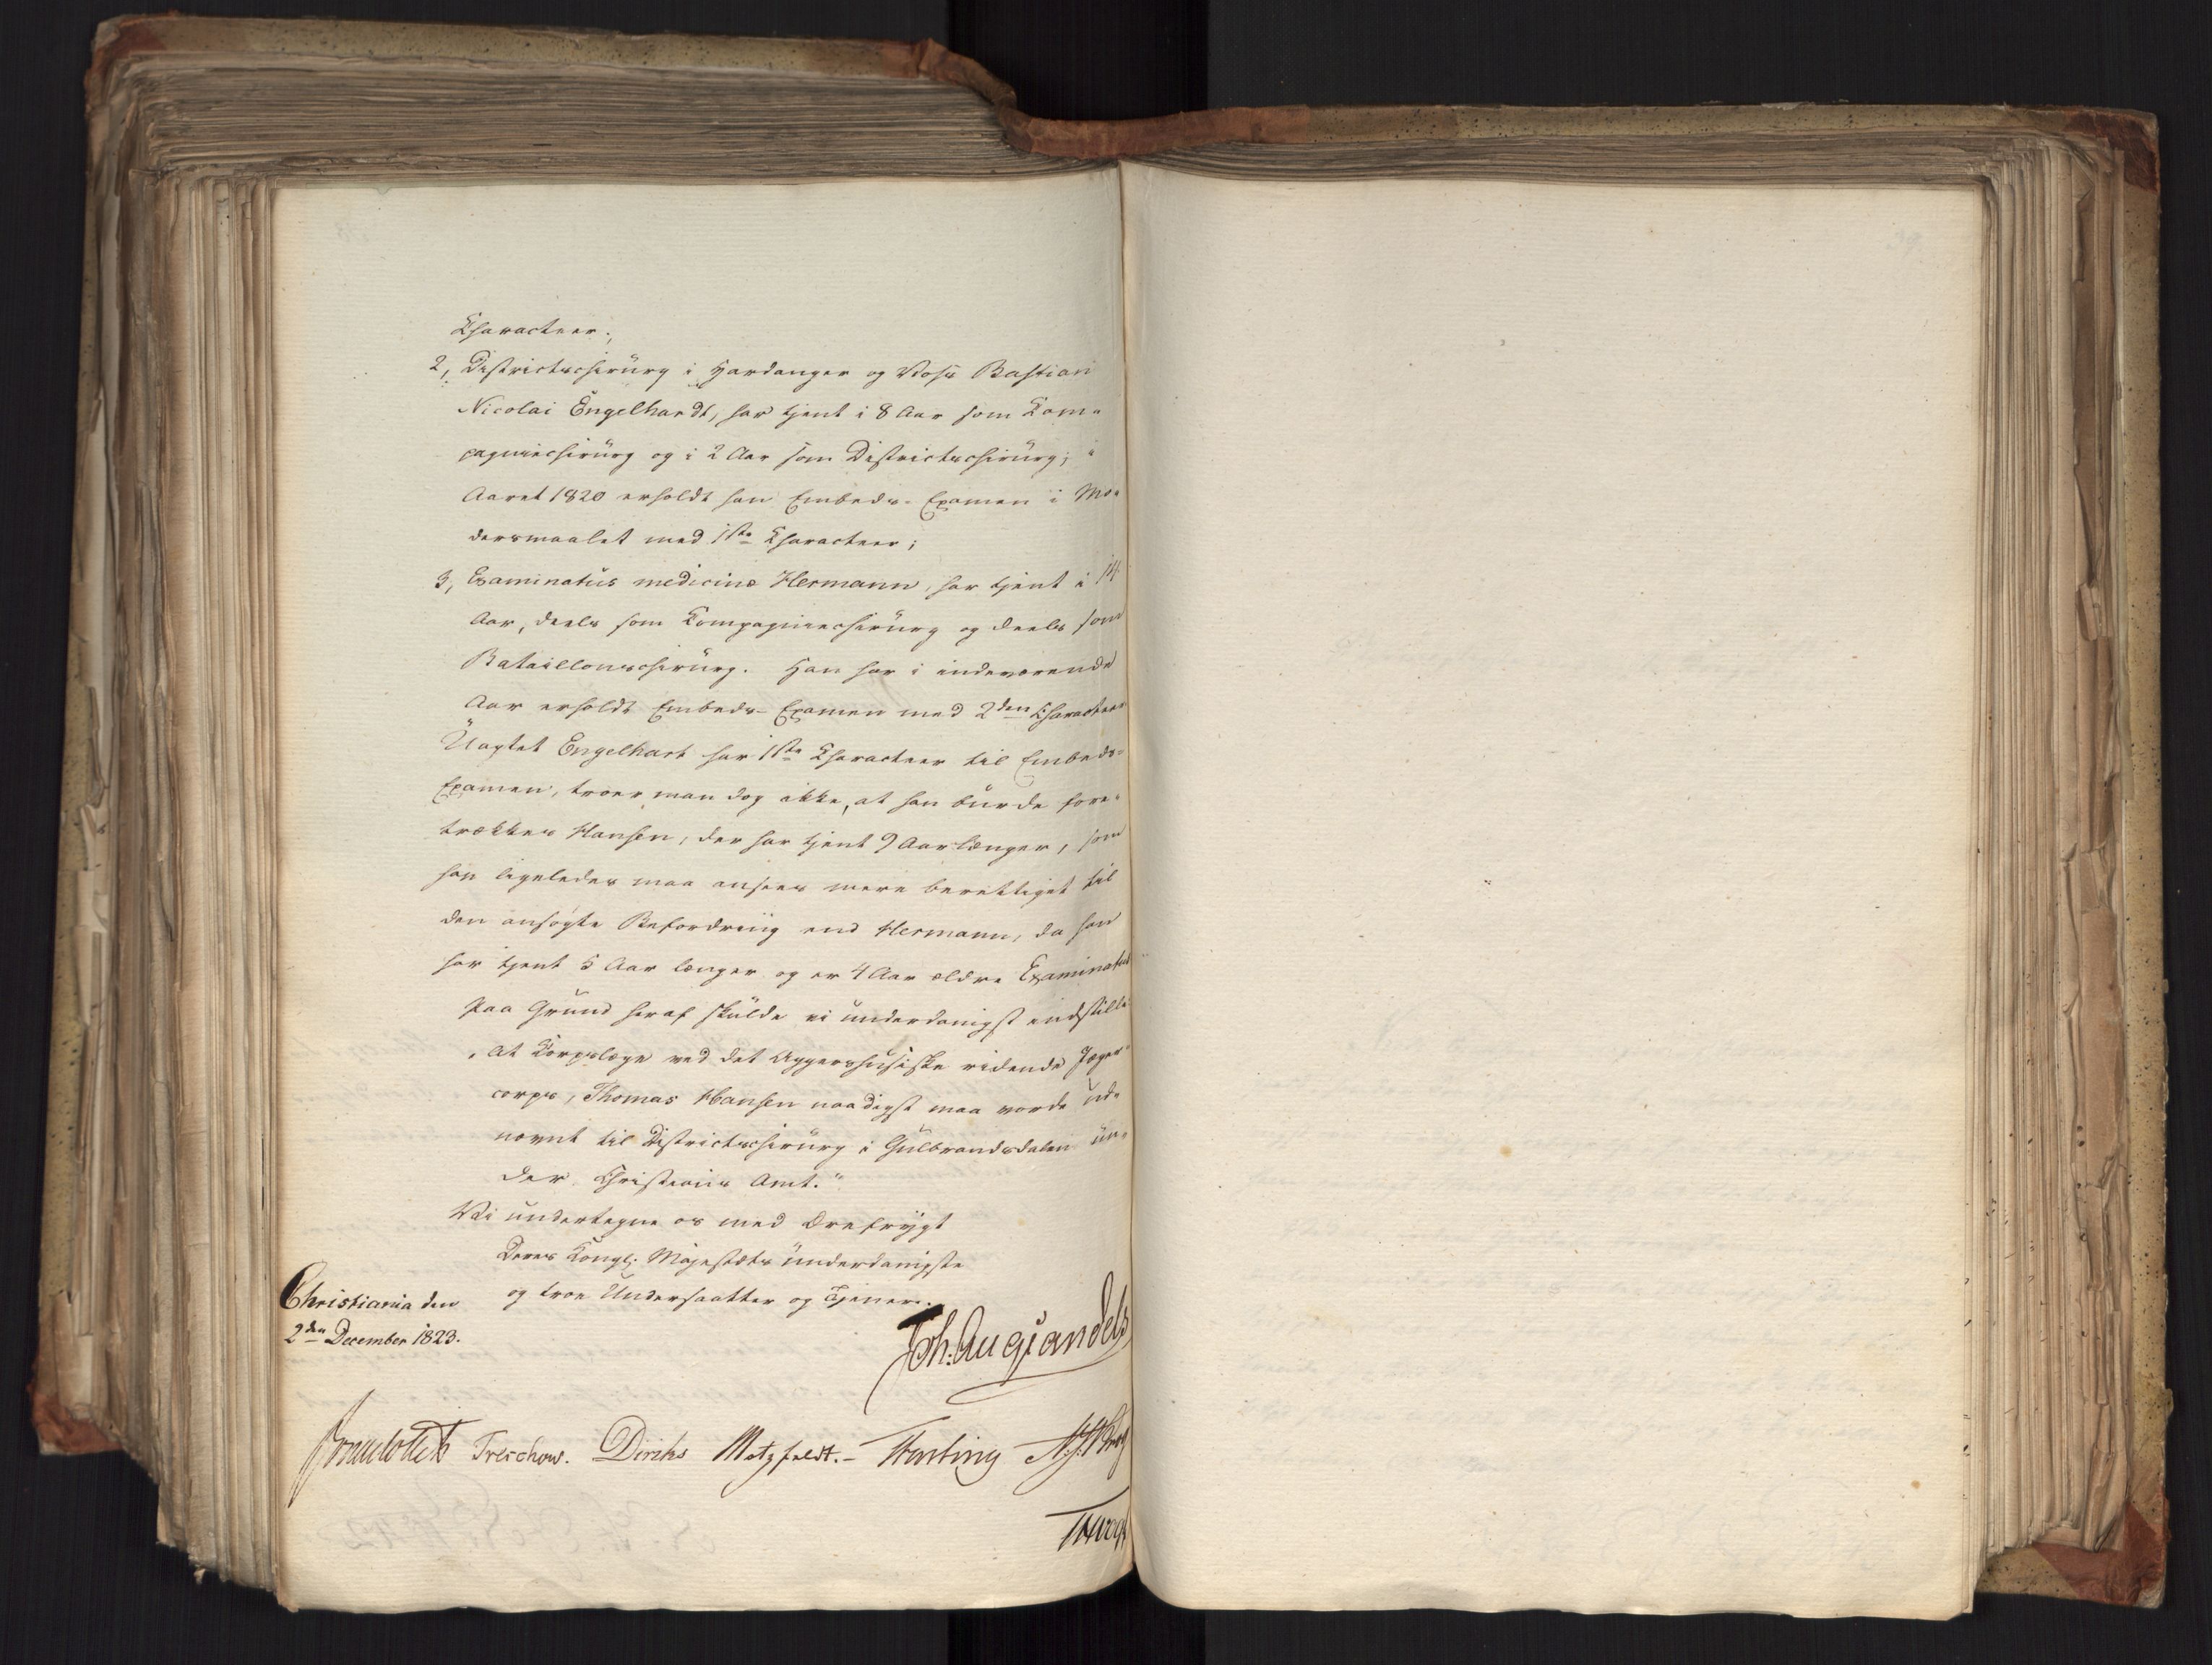 Characteer;
2, Districtschirurg i Hardanger og Voss Bastian
Nicolai Engelhardt, har tjent i 8 Aar som Kom-
pagniechirurg og i 2 Aar som Districtschirurg; i
Aaret 1820 erholdt han Embeds-Examen i Mo-
dersmaalet med 1ste Characteer;
3, Examinatus medicinæ Hermann, har tjent i 14
Aar, deels som Kompagniechirurg og deels som
Bataillonschirurg. Han har i indeværende
Aar erholdt Embeds-Examen med 2den Characteer
Uagtet Engelhart har 1ste Characteer til Embeds-
Examen, troer man dog ikke, at han burde fore-
trækkes Hansen, der har tjent 9 Aar længer, som
han ligeledes maa ansees mere berettiget til
den ansøgte Befordring end Hermann, da han
har tjent 5 Aar længer og er 4 Aar ældre Examinatus
Paa Grund heraf skulde vi underdanigst indstille
„At Korpslæge ved det Aggershusiske ridende Jæger-
corps, Thomas Hansen naadigst maa vorde ud-
nævnt til Districtschirurg i Gulbrandsdalen un-
der Christians Amt.“
Vi undertegne os med Ærefrygt
Deres Kongl. Majestæts underdanigste
og troe Undersaatter og Tjenere.
Christiania den
2den December 1823.
Joh: Aug: Sandels
Treschow. Diriks Motzfeldt.- Fasting